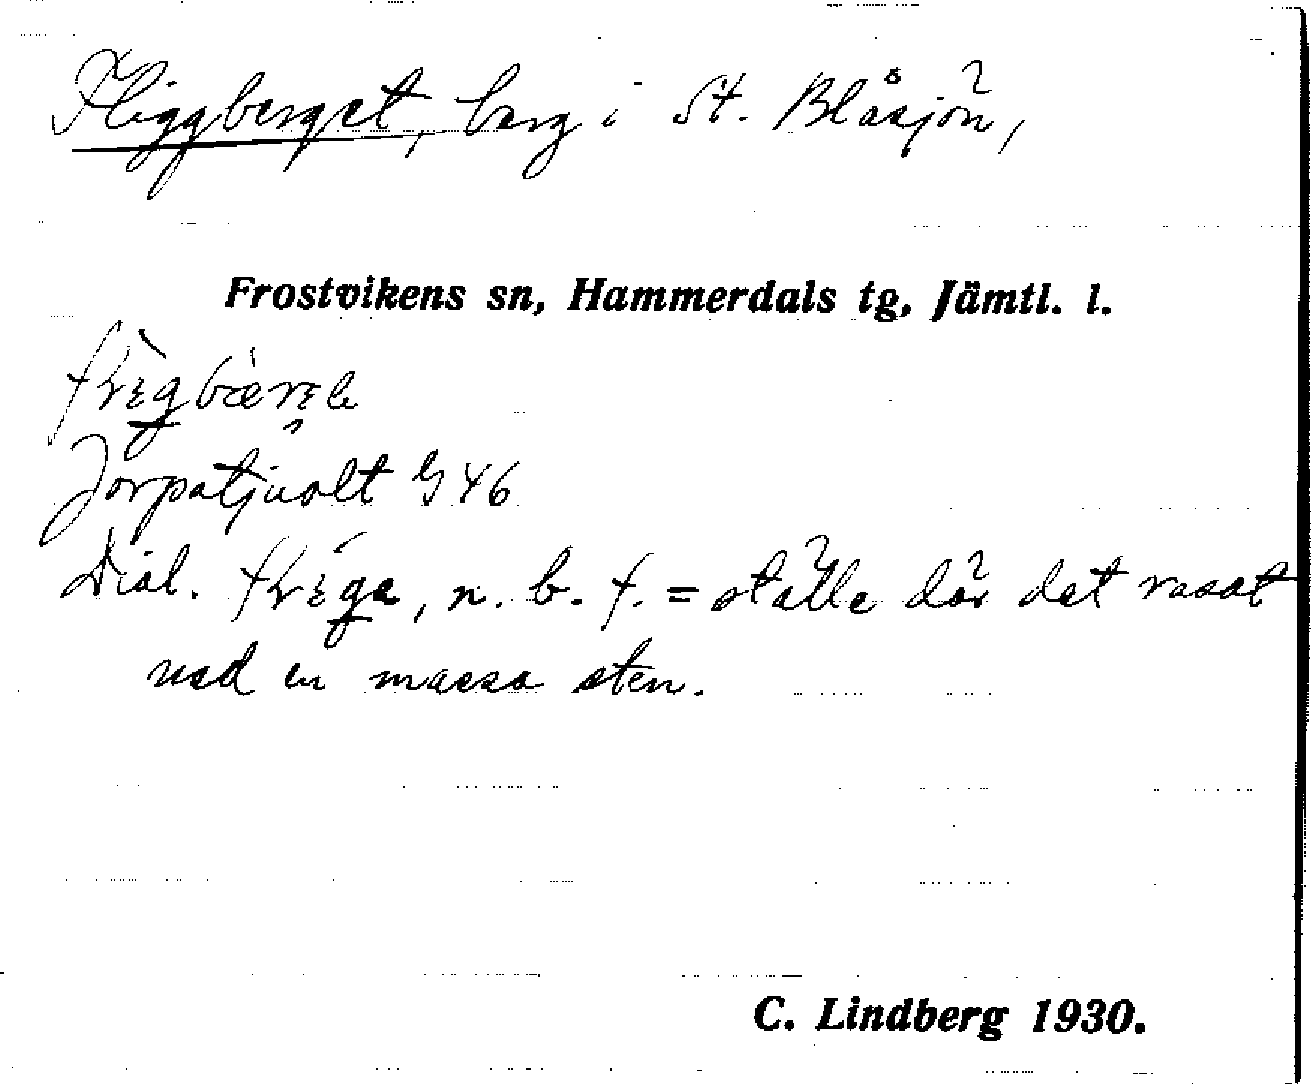 Fliggberget, berg i St. Blåsjön,
Frostvikens sn, Hammerdals tg, Jämtl. l.
Jorpatjuolt G 46
Dial. , n. b. f. = ställe där det rasat
ned en massa sten.
C. Lindberg 1930.